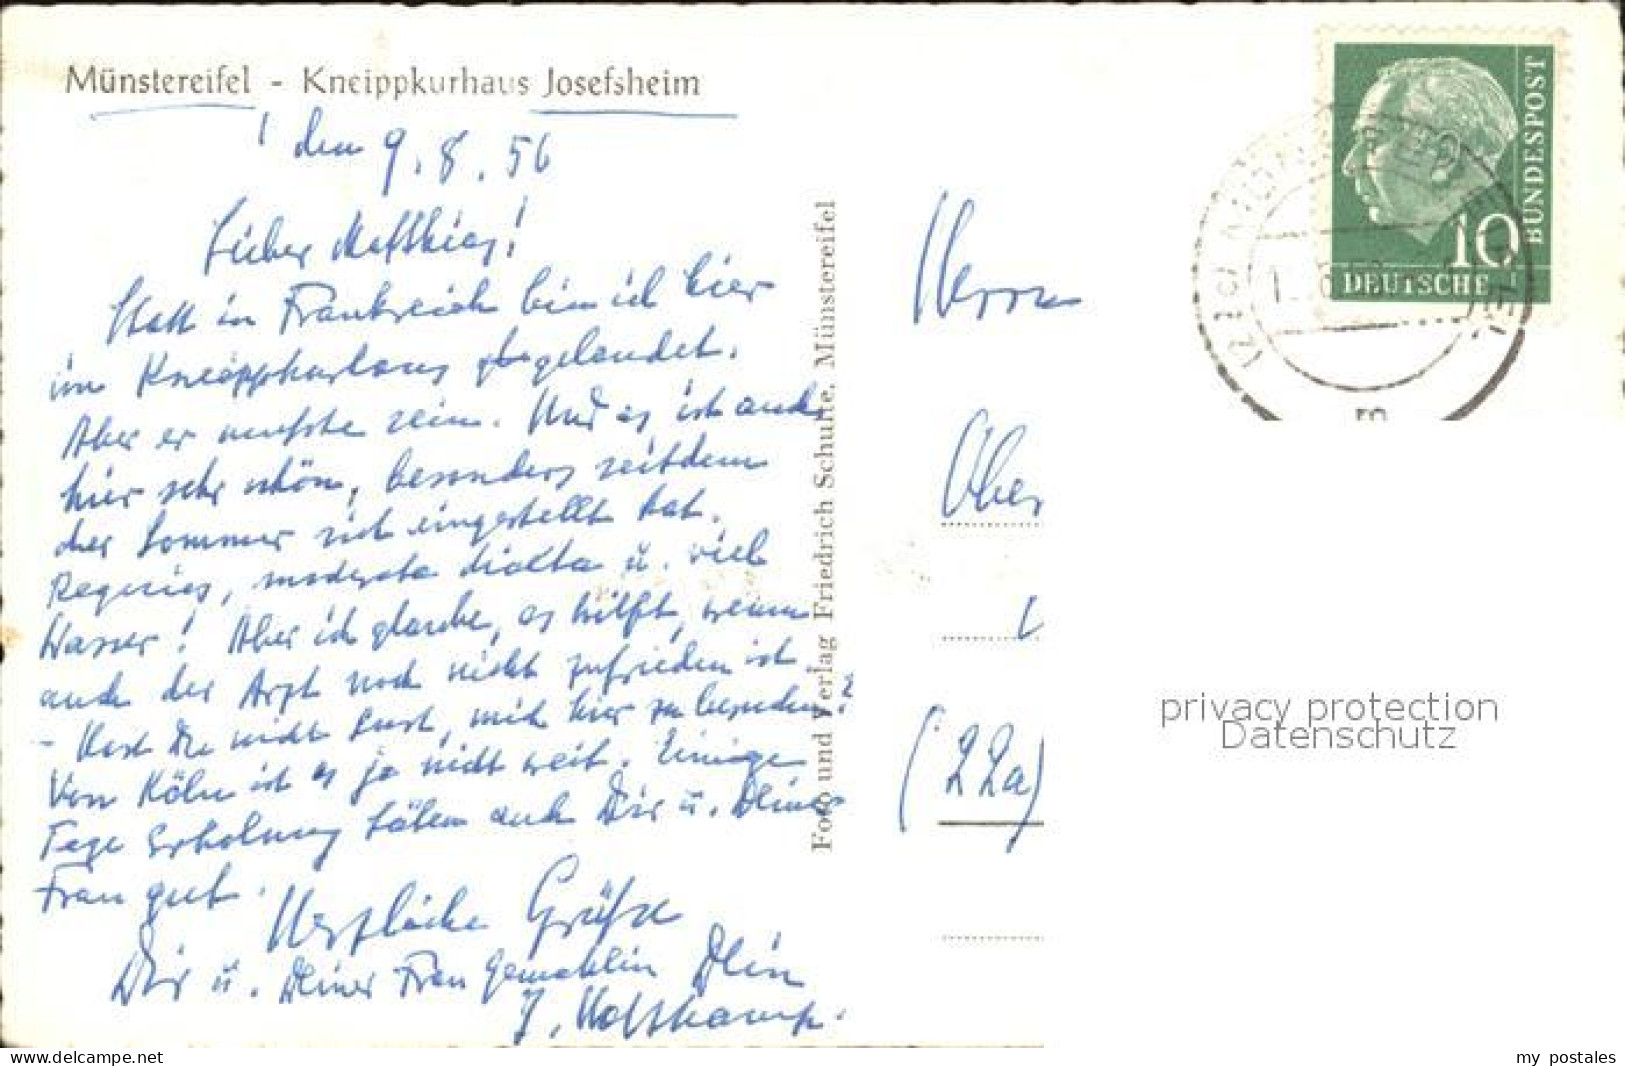 Münstereifel - Kneippkurhaus Josefsheim
den 9.8.56
Lieber Matthias!
Statt in Frankreich bin ich hier
im Kneippkurhaus gelandet.
Aber er mußte sein. Und es ist auch
hier sehr schön, besonders seitdem
der Sommer sich eingestellt hat.
moderata diaeta u. viel
Wasser! Aber ich glaube, es hilft, wenn
auch der Arzt noch nicht zufrieden ist
- Hast Du nicht Lust, mich hier zu besuchen?
Von Köln ist es ja nicht weit. Einige
Tage Erholung täten auch Dir u. Deiner
Frau gut.
Herzliche Grüße
Dir u. Deiner Frau Gemahlin Dein
J. Holtkamp.
Foto und Verlag Friedrich Schulte, Münstereifel
Herrn
Ober
(22a)
10
DEUTSCHE
BUNDESPOST
m
privacy protection
Datenschutz
delcampe.net
my postales